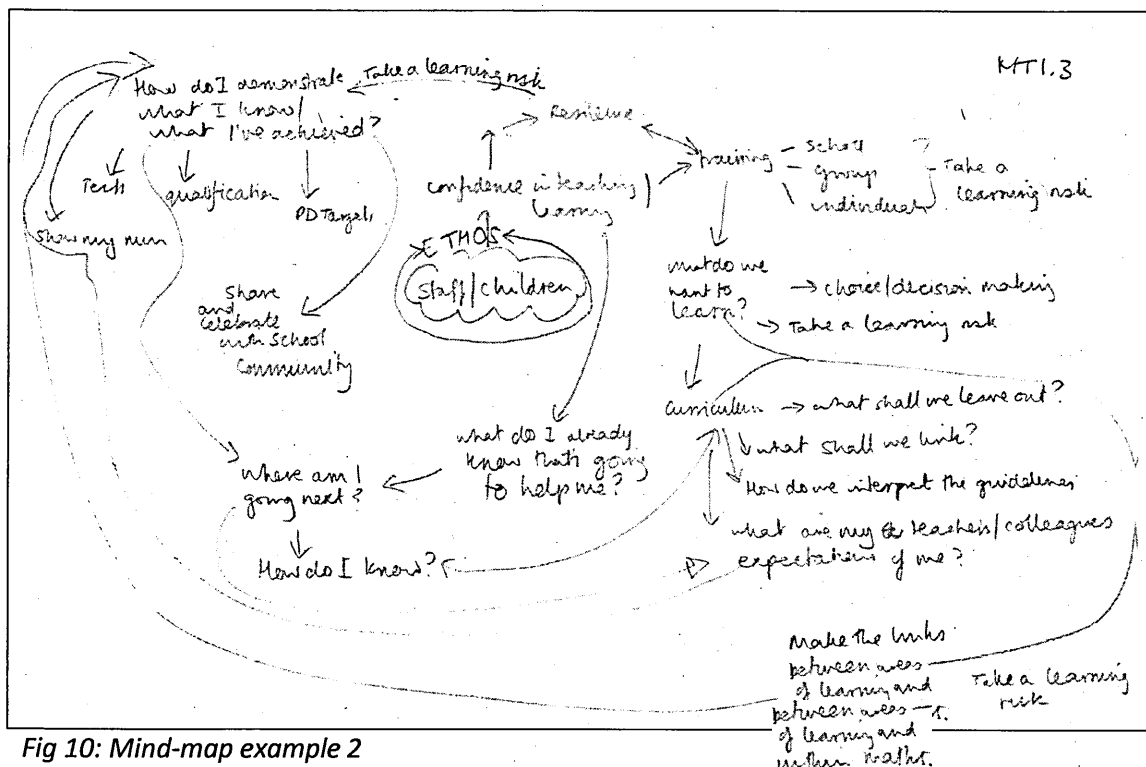 MT1.3
How do I demonstrate
what I know/
what I've achieved?
Take a learning risk
Resilience
Tests
qualification
PD Targets
Show my mum
Share
and
celebrate
with school
Community
confidence in teaching/
learning
ETHOS
Staff/children
training
- school
- group
\ individual
?
- Take a
learning risk
what do we
want to
learn?
→ choice/decision making
→ Take a learning risk
Curriculum → what shall we leave out?
what shall we link?
How do we interpret the guidelines
what are my teachers/colleagues
expectations of me?
what do I already
know that's going
to help me?
where am I
going next?
How do I know?
Make the links
between areas
of learning and
between areas
of learning and
within maths.
Take a learning
risk
Fig 10: Mind-map example 2